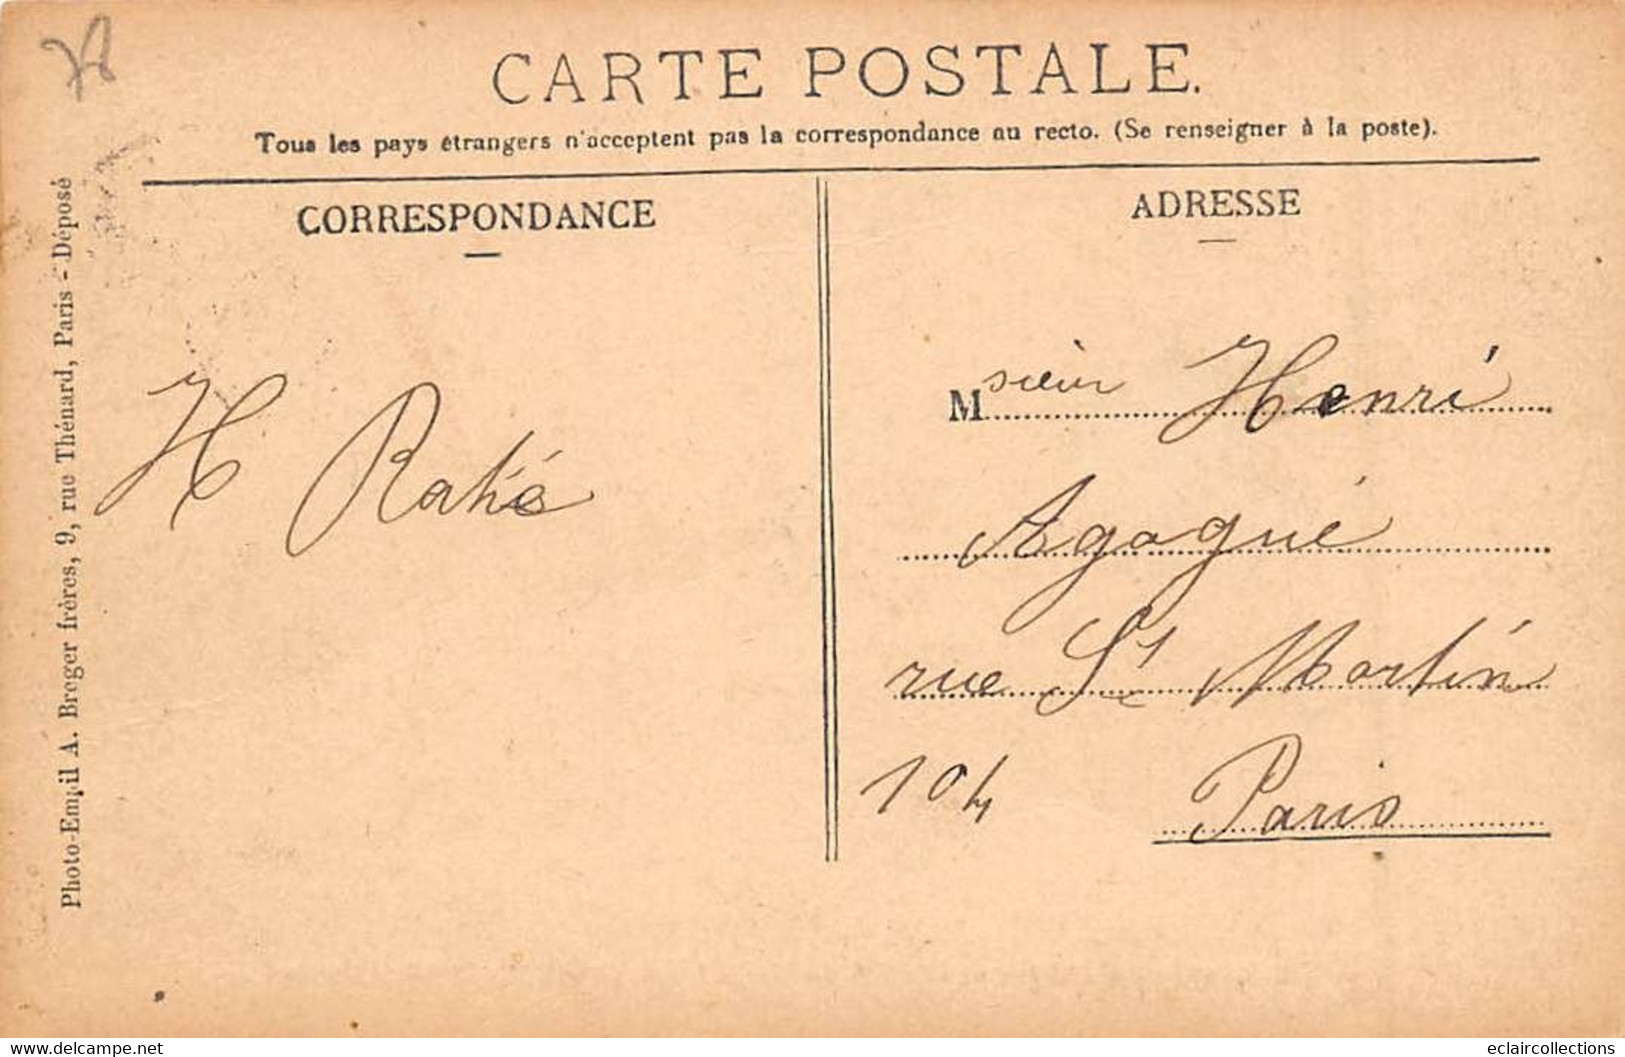 78
CARTE POSTALE.
Tous les pays étrangers n'acceptent pas la correspondance au recto. (Se renseigner à la poste).
Photo-Email A. Breger frères, 9, rue Thénard, Paris - Déposé
CORRESPONDANCE
H
ADRESSE
Msieur Henri
Agogué
rue St Martin
104 Paris
delcampe.net
eclaircollections